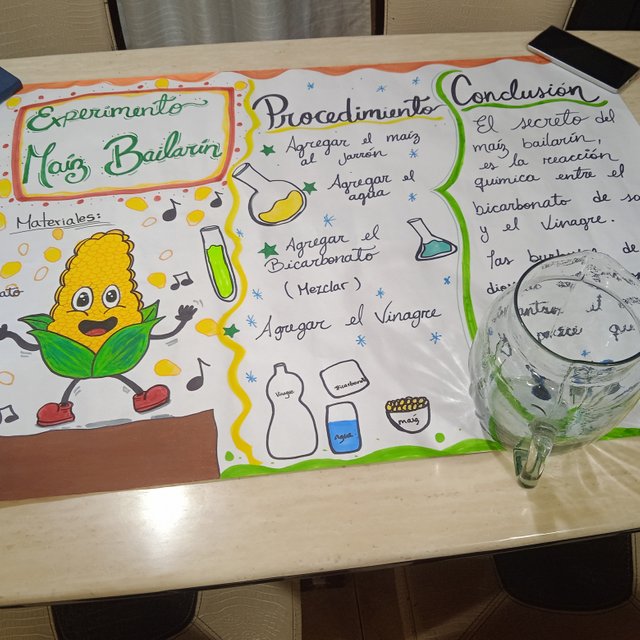 Experimento
Maíz Bailarín
Materiales:
Procedimiento
Agregar el maíz
al jarrón
Agregar el
agua
Agregar el
Bicarbonato
(Mezclar)
Agregar el Vinagre
Vinagre
Bicarbonato
Agua
maíz
Conclusión
El secreto del
maíz bailarín,
es la reacción
química entre el
bicarbonato de so
y el Vinagre.
Las de
el
que